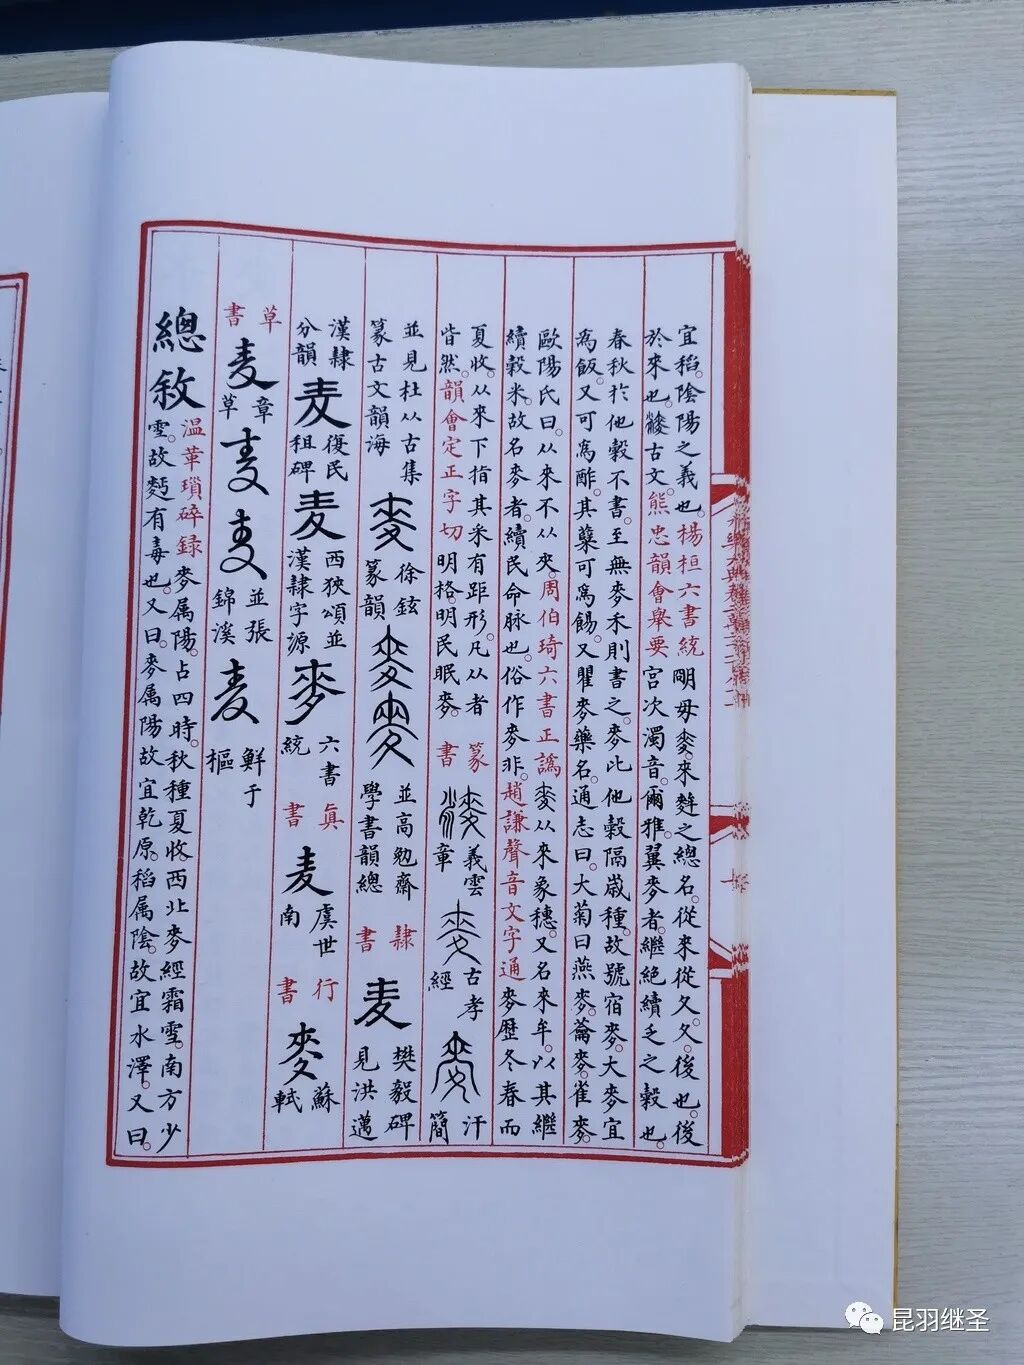 宜稻。陰陽之義也。楊桓六書統 明毋麥。來麰之總名。從來從夂。夂。後也。後
於來也。古文。熊忠韻會舉要 宮次濁音。爾雅翼麥者。繼絶續乏之穀也。
春秋於他穀不書。至無麥禾則書之。麥比他穀隔歲種。故號宿麥。大麥宜
為飯。又可為酢。其糵可為餳。又瞿麥藥名。通志曰。大菊曰燕麥。蘥麥。雀麥。
歐陽氏曰。从來不从夾。周伯琦六書正譌 麥从來象穗。又名來牟。以其繼
續穀米。故名麥者。續民命脉也。俗作麦非。趙謙聲音文字通 麥歴冬春而
夏收。从來下指其釆有距形。凡从者
皆然。韻會定正字切 明格。明民眠麥。
篆書 麥 義雲章 麥 古孝經 麥 汗簡
並見杜从古集篆古文韻海 麥 徐鉉篆韻 麥 麥 並高勉齋學書韻總 隸書 麦 樊毅碑見洪邁
漢隸分韻 麦 復民租碑 麦 西狹頌並漢隸字源 麥 六書統 眞書 麦 虞世南 行書 麥 蘇軾
草書 麦 章草 麦 麦 並張錦溪 麦 鮮于樞
總敘 溫革瑣碎錄 麥属陽。占四時。秋種夏收。西北麥經霜雪。南方少
雪。故麪有毒也。又曰。麥属陽故宜乾原。稻属陰。故宜水澤。又曰。
昆羽继圣